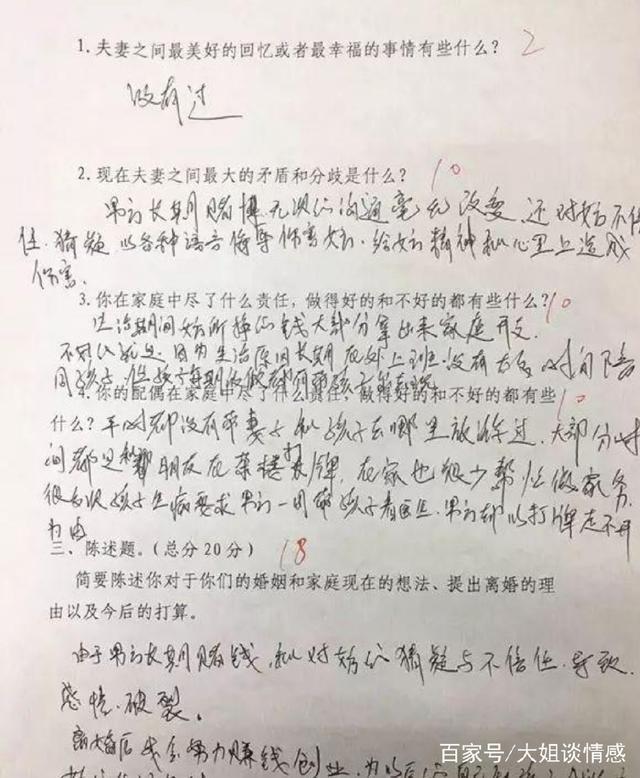 1.夫妻之间最美好的回忆或者最幸福的事情有些什么? 2
没有过
2.现在夫妻之间最大的矛盾和分歧是什么? 10
男方长期赌博无次的沟通毫无改变,还对女方不信
任.猜疑.以各种语言侮辱伤害女方.给女方精神和心里上造成
伤害.
3.你在家庭中尽了什么责任,做得好的和不好的都有些什么? 10
生活期间女方所挣的钱大部分拿出来家庭开支.
因为生活原因长期在外上班没有太多时间陪
同孩子.
4.你的配偶在家庭中尽了什么责任,做得好的和不好的都有些
什么? 10
平时都没有带妻子和孩子去哪里放松过.大部分时
间都是和朋友在茶楼打牌.在家也很少帮忙做家务.
孩子生病要求男方一同带孩子看医生.男方却以打牌走不开
为由
三、陈述题。(总分20分) 18
简要陈述你对于你们的婚姻和家庭现在的想法、提出离婚的理
由以及今后的打算。
由于男方长期赌钱,和对女方的猜疑与不信任.导致
感情.破裂。
离婚后我会努力赚钱创业,为以后
百家号/大姐谈情感